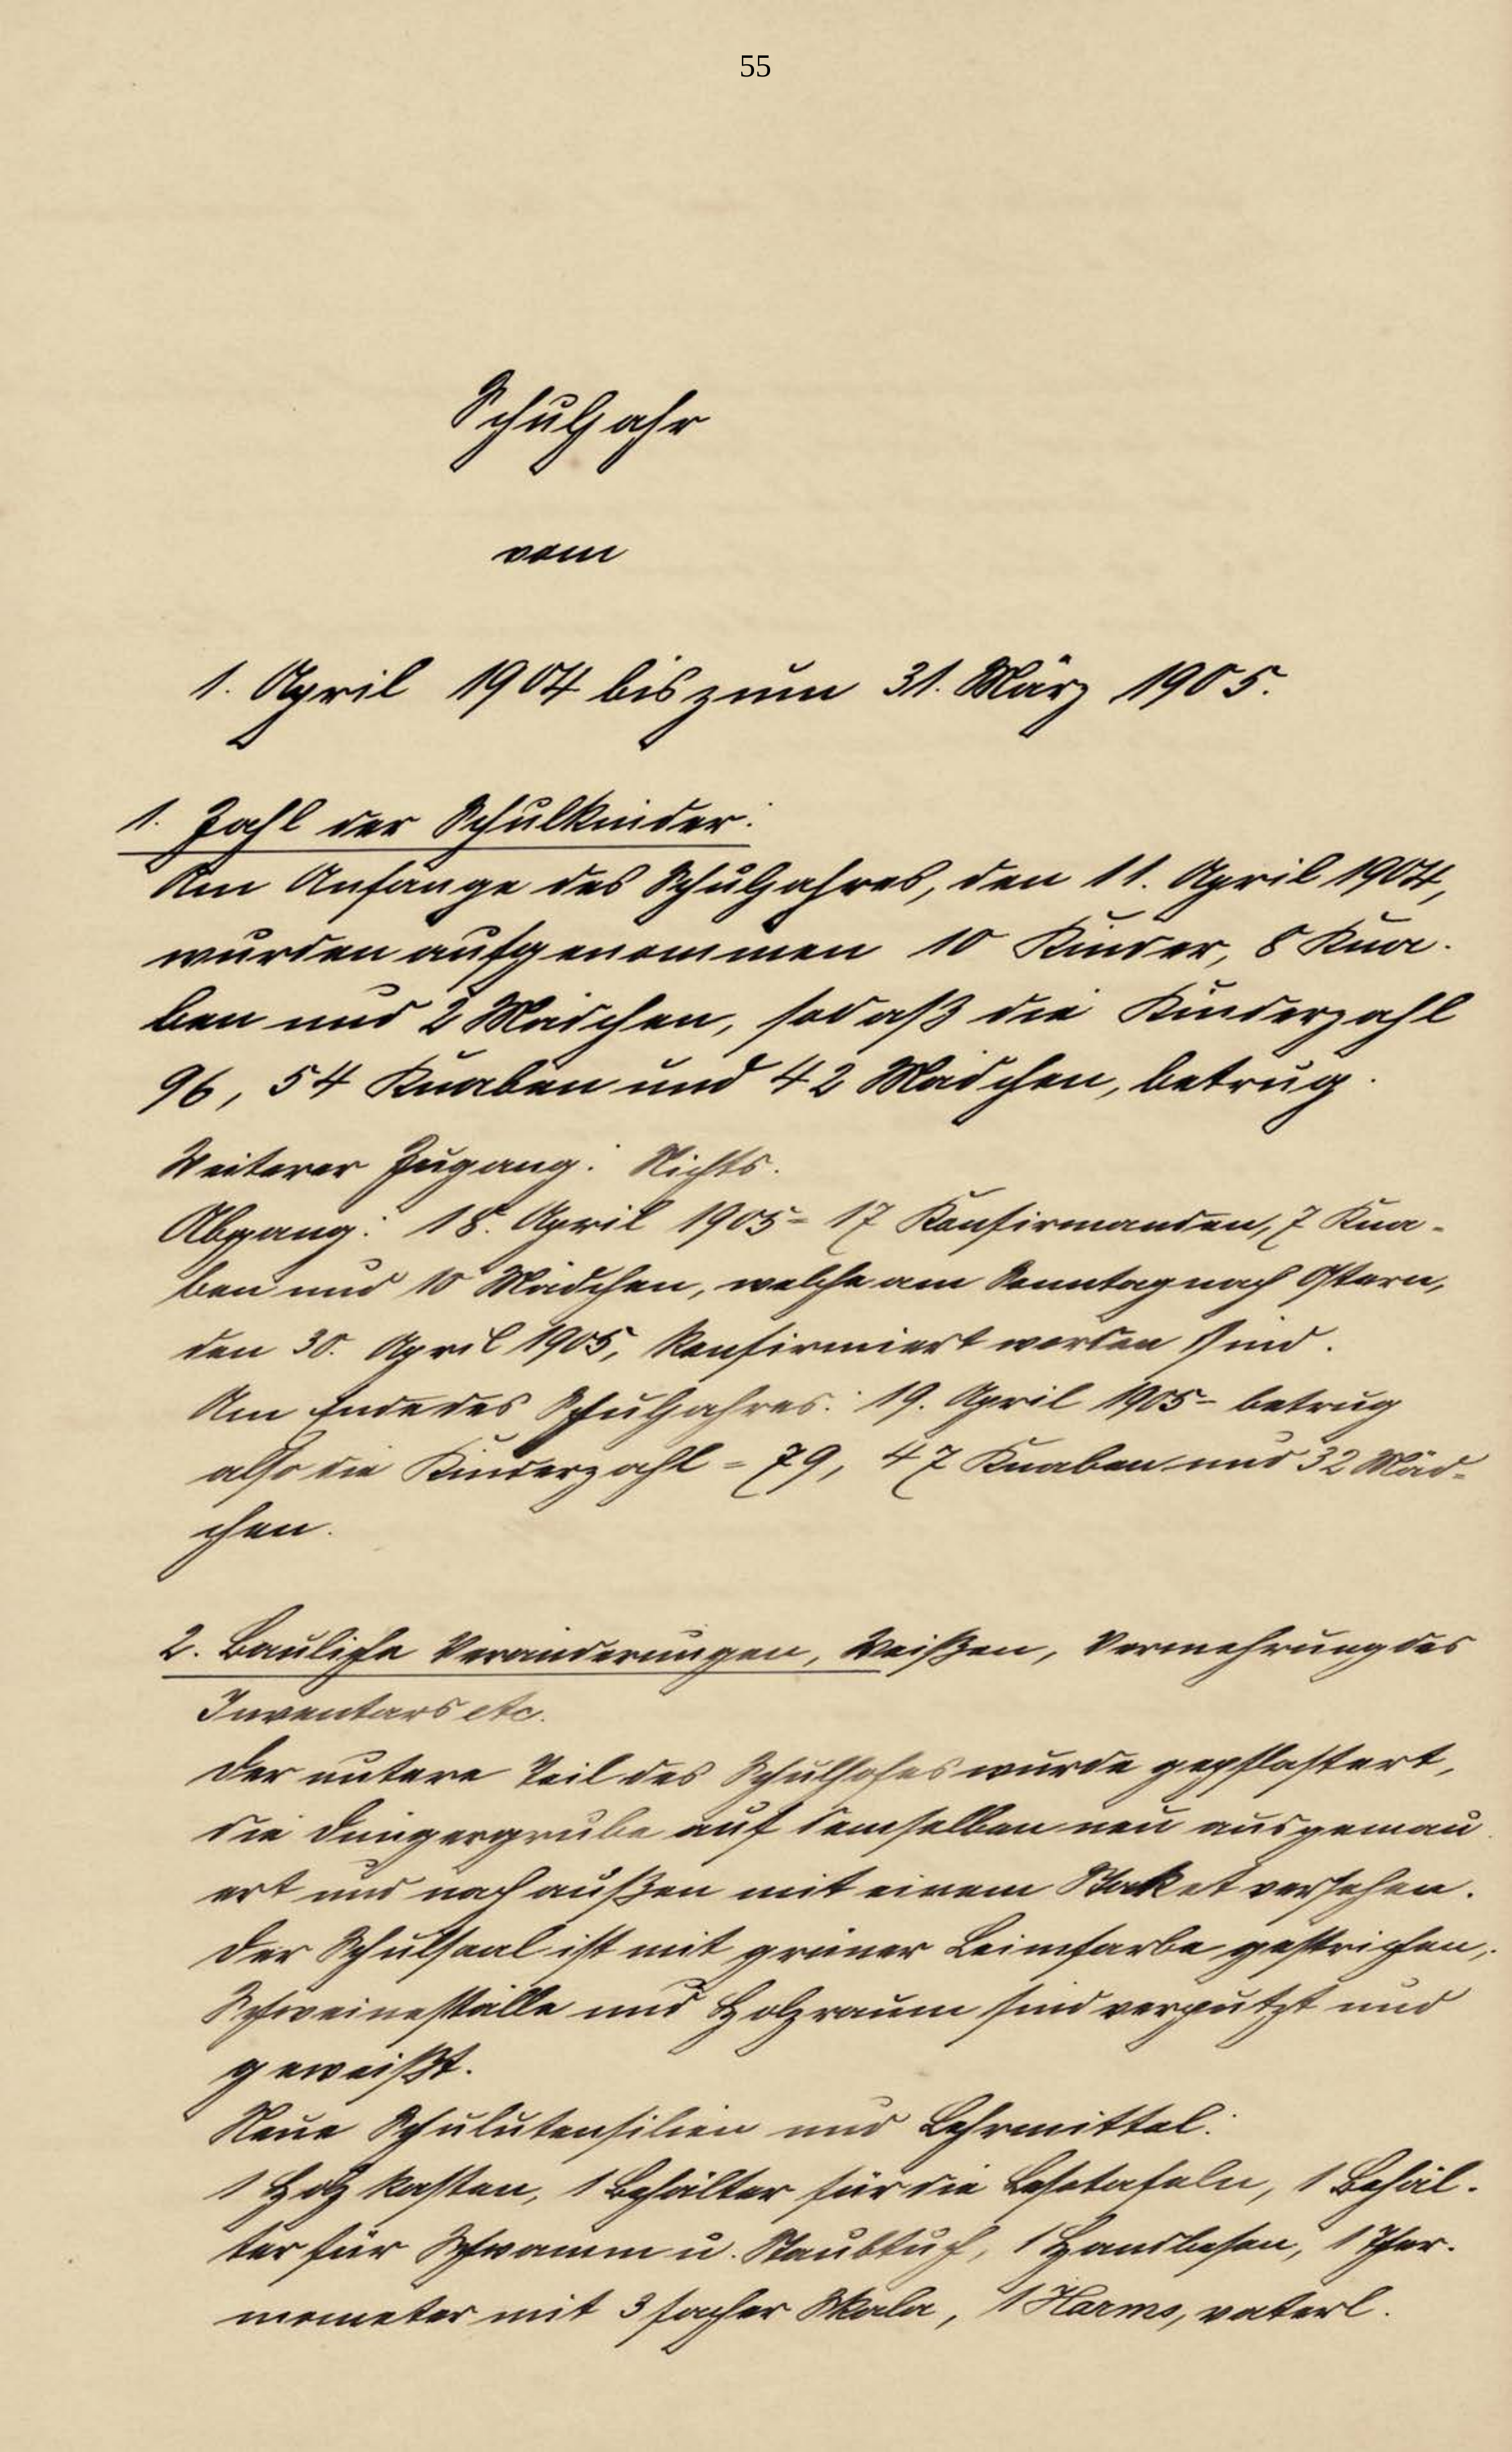 55
Schuljahr
vom
1. April 1904 bis zum 31. März 1905.
1. Zahl der Schulkinder:
Am Anfange des Schuljahres, den 11. April 1904,
wurden aufgenommen 10 Kinder, 8 Kna-
ben und 2 Mädchen, sodaß die Kinderzahl
96, 54 Knaben und 42 Mädchen, betrug.
Weiterer Zugang: Nichts.
Abgang: 18. April 1905 = 17 Konfirmanden, 7 Kna-
ben und 10 Mädchen, welche am Sonntag nach Ostern,
den 30. April 1905, konfirmiert worden sind.
Am Ende des Schuljahres: 19. April 1905 - betrug
also die Kinderzahl = 79, 47 Knaben und 32 Mäd-
chen.
2. Bauliche Veränderungen, Weißen, Vermehrung des
Inventars etc.
Der untere Teil des Schulhofes wurde gepflastert,
die Düngergrube auf demselben neu ausgemau-
ert und nach außen mit einem Staket versehen.
Der Schulsaal ist mit grüner Leimfarbe gestrichen,
Schweineställe und Holzraum sind verputzt und
geweißt.
Neue Schulutensilien und Lehrmittel:
1 Holzkasten, 1 Behälter für die Lesetafeln, 1 Behäl-
ter für Schwamm u. Staubtuch, 1 Handbesen, 1 Ther-
mometer mit 3facher Skala, 1 Harms, vaterl.